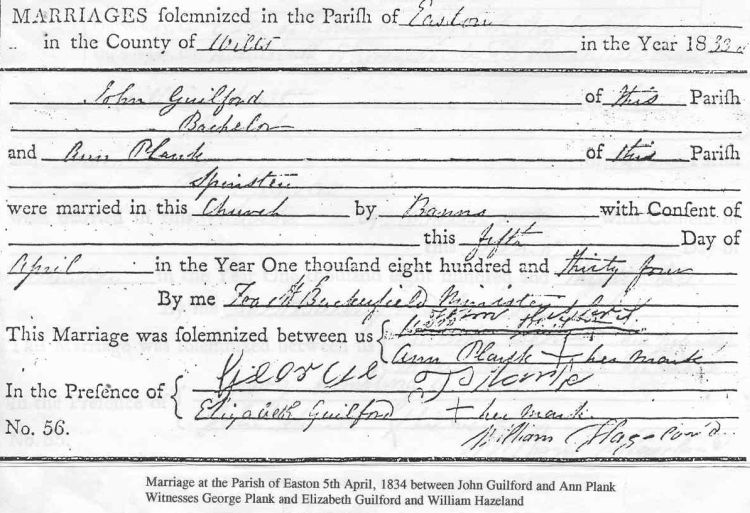 MARRIAGES ſolemnized in the Pariſh of Easton
in the County of Wilts in the Year 1833
John Guilford of this Pariſh
Bachelor
and Ann Plank of this Pariſh
Spinster
were married in this Church by Banns with Conſent of
this fifth Day of
April in the Year One thouſand eight hundred and thirty four
By me Minister
This Marriage was ſolemnized between us
Ann Plank + her mark
In the Preſence of George Plank
Elizabeth Guilford + her mark
No. 56. William
Marriage at the Parish of Easton 5th April, 1834 between John Guilford and Ann Plank
Witnesses George Plank and Elizabeth Guilford and William Hazeland